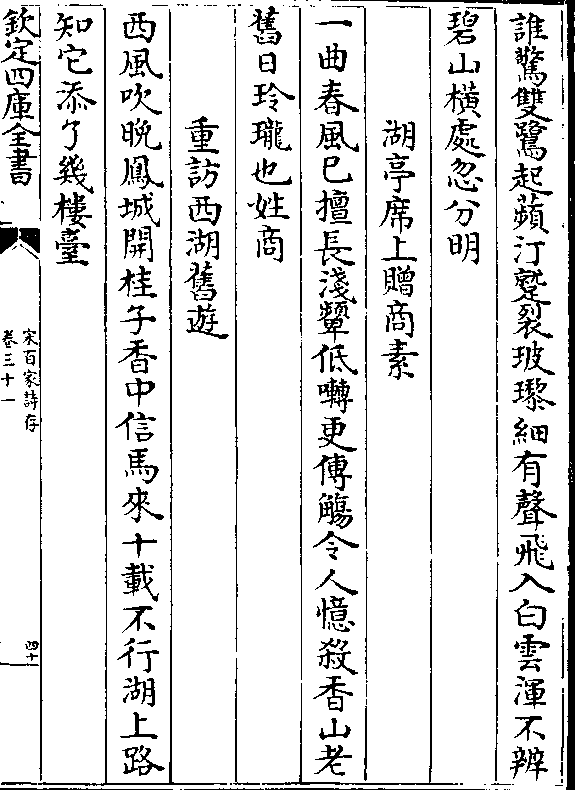 誰驚雙鷺起蘋汀蹙裂玻瓈細有聲飛入白雲渾不辨
碧山橫處忽分明
湖亭席上贈商素
一曲春風已擅長淺顰低囀更傳觴令人憶殺香山老
舊日玲瓏也姓商
重訪西湖舊遊
西風吹晚鳳城開桂子香中信馬來十載不行湖上路
知它添了幾樓臺
欽定四庫全書
宋百家詩存
卷三十一
四十